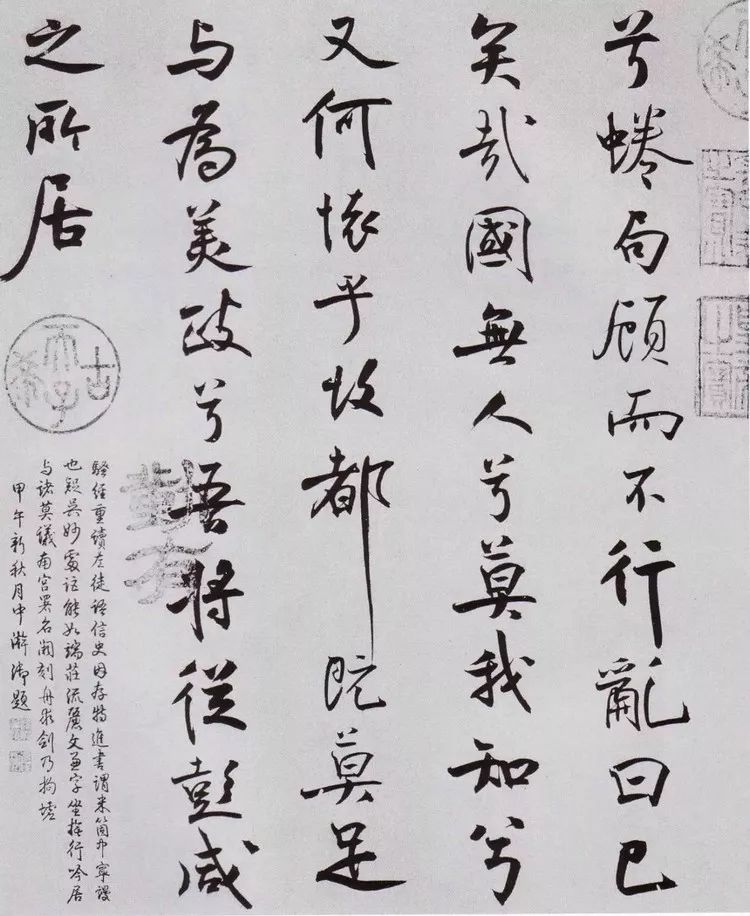 兮蜷局顧而不行亂曰已
矣哉國無人兮莫我知兮
又何懷乎故都既莫足
与為美政兮吾將從彭咸
之所居
古希天子
騷經重讀左徒語信史因存特進書謂米箇中寧謾
也疑吳妙處詎能如端莊流麗文兼字坐撫行吟居
与諸莫議南宮署名闕刻舟求劍乃拘墟
甲午新秋月中澣御題